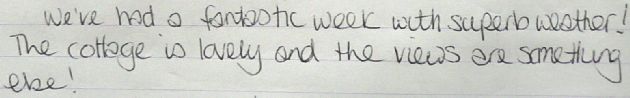 We've had a fantastic week with superb weather!
The cottage is lovely and the views are something
else!